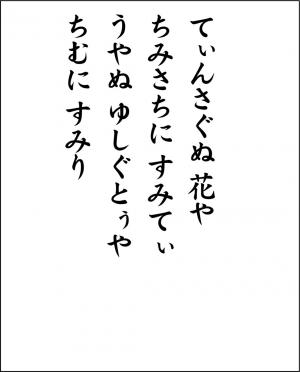 てぃんさぐぬ 花や
ちみさちに すみてぃ
うやぬ ゆしぐとぅや
ちむに すみり